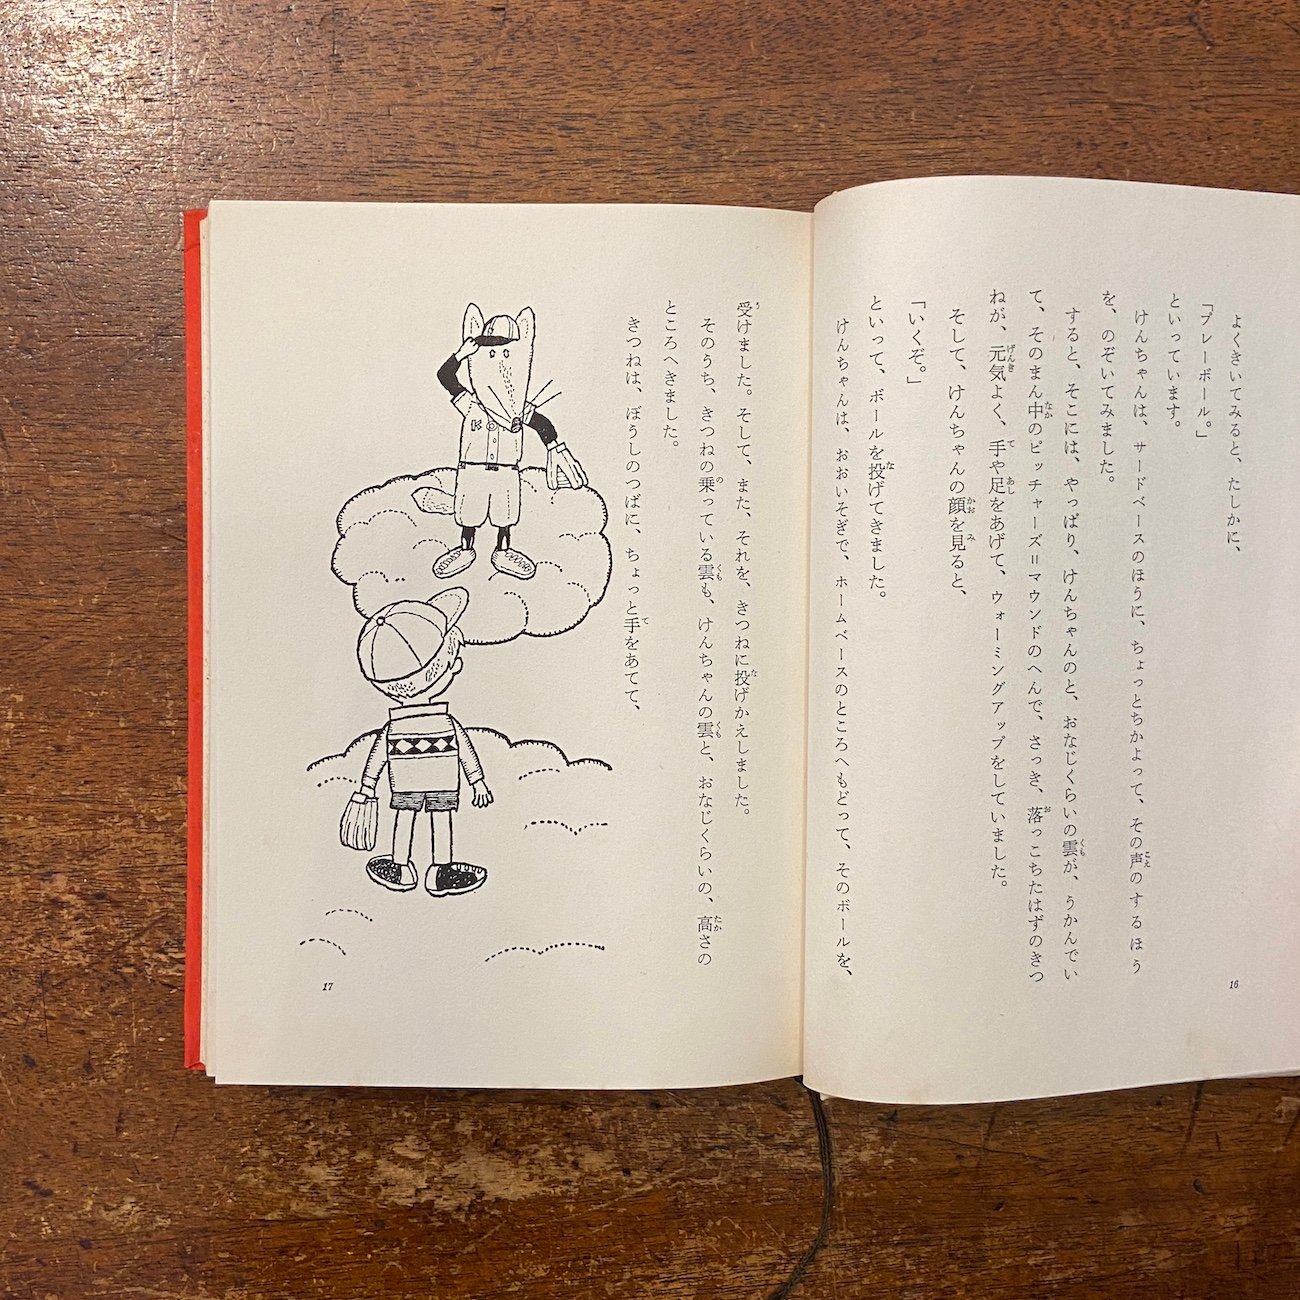 よくきいてみると、たしかに、
「プレーボール。」
といっています。
けんちゃんは、サードベースのほうに、ちょっとちかよって、その声のするほう
を、のぞいてみました。
すると、そこには、やっぱり、けんちゃんのと、おなじくらいの雲が、うかんでい
て、そのまん中のピッチャーズ=マウンドのへんで、さっき、落っこちたはずのきつ
ねが、元気よく、手や足をあげて、ウォーミングアップをしていました。
そして、けんちゃんの顔を見ると、
「いくぞ。」
といって、ボールを投げてきました。
けんちゃんは、おおいそぎで、ホームベースのところへもどって、そのボールを、
16
受けました。そして、また、それを、きつねに投げかえしました。
そのうち、きつねの乗っている雲も、けんちゃんの雲と、おなじくらいの、高さの
ところへきました。
きつねは、ぼうしのつばに、ちょっと手をあてて、
K
17